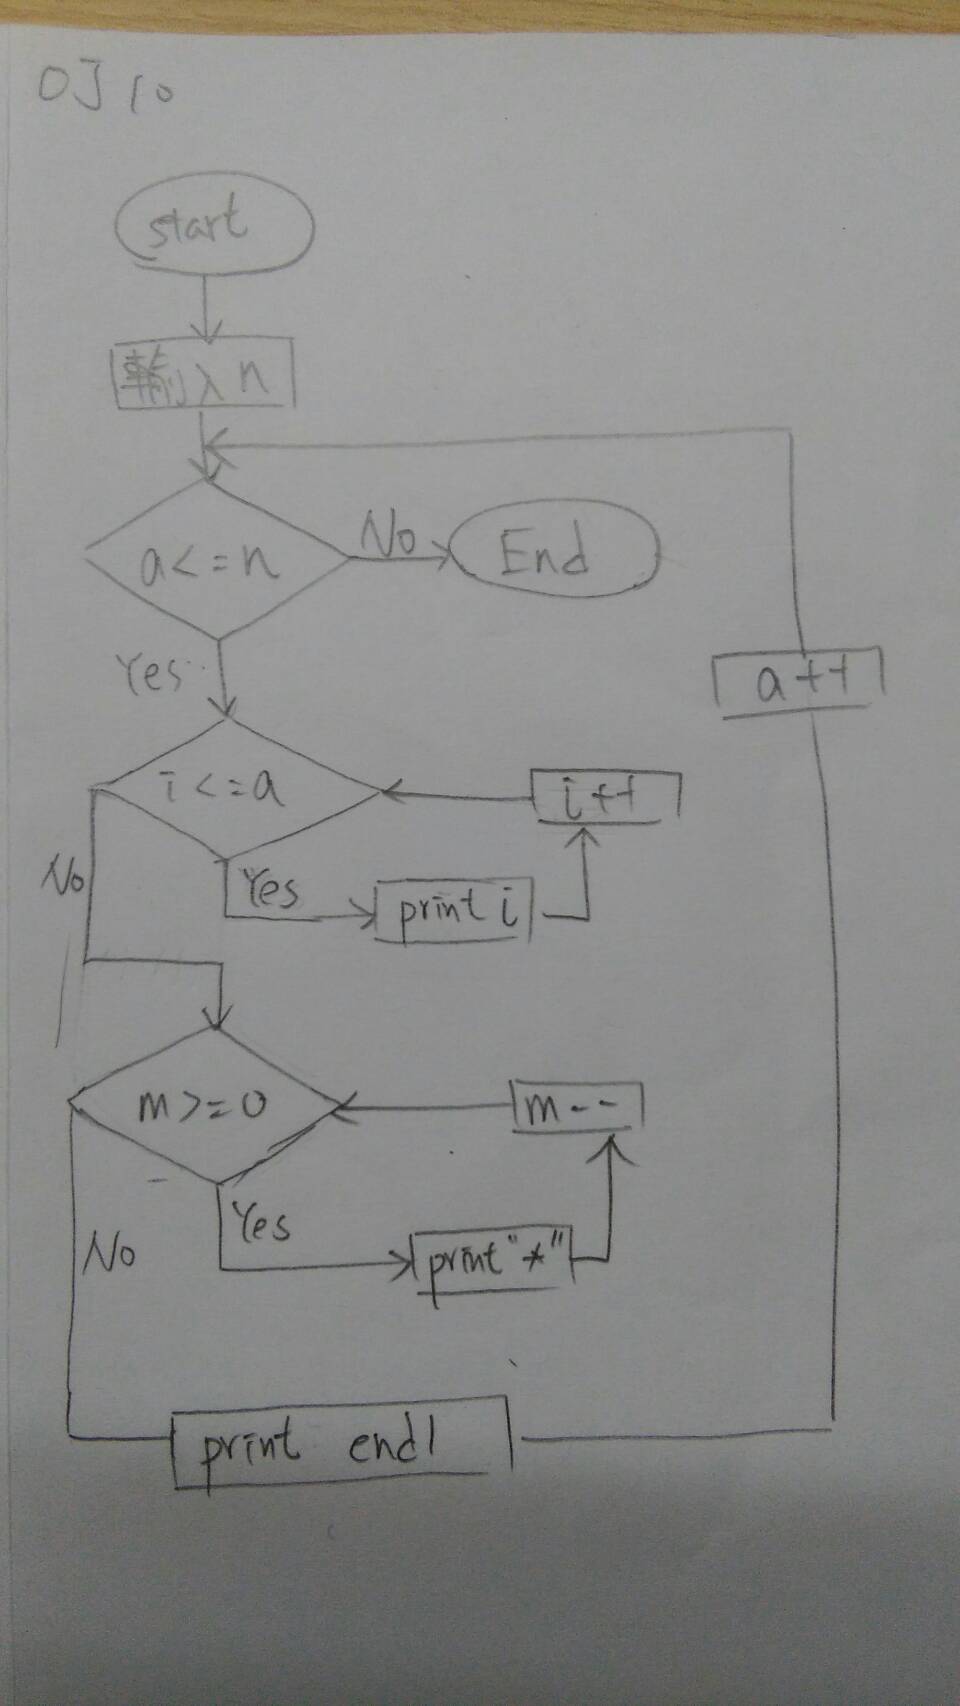 OJ 10
start
輸入 n
a<=n
No
End
Yes
a++
i<=a
i++
No
Yes
print i
m>=0
m--
Yes
No
print "*"
print endl